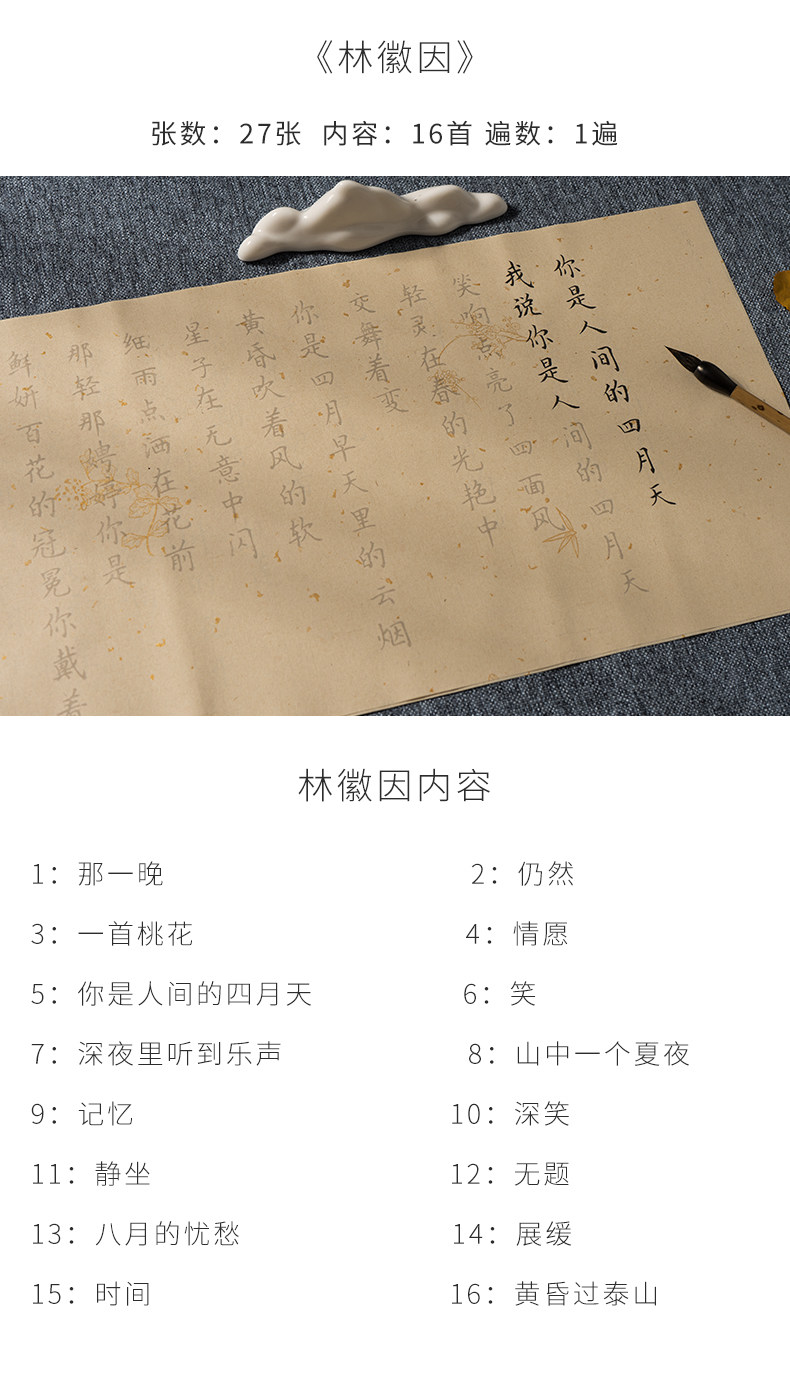 《林徽因》
张数：27张 内容：16首 遍数：1遍
你是人间的四月天
我说你是人间的四月天
笑响点亮了四面风
轻灵在春的光艳中
交舞着变
你是四月早天里的云烟
黄昏吹着风的软
星子在无意中闪
细雨点洒在花前
那轻那娉婷你是
鲜妍百花的冠冕你戴着
林徽因内容
1：那一晚
2：仍然
3：一首桃花
4：情愿
5：你是人间的四月天
6：笑
7：深夜里听到乐声
8：山中一个夏夜
9：记忆
10：深笑
11：静坐
12：无题
13：八月的忧愁
14：展缓
15：时间
16：黄昏过泰山